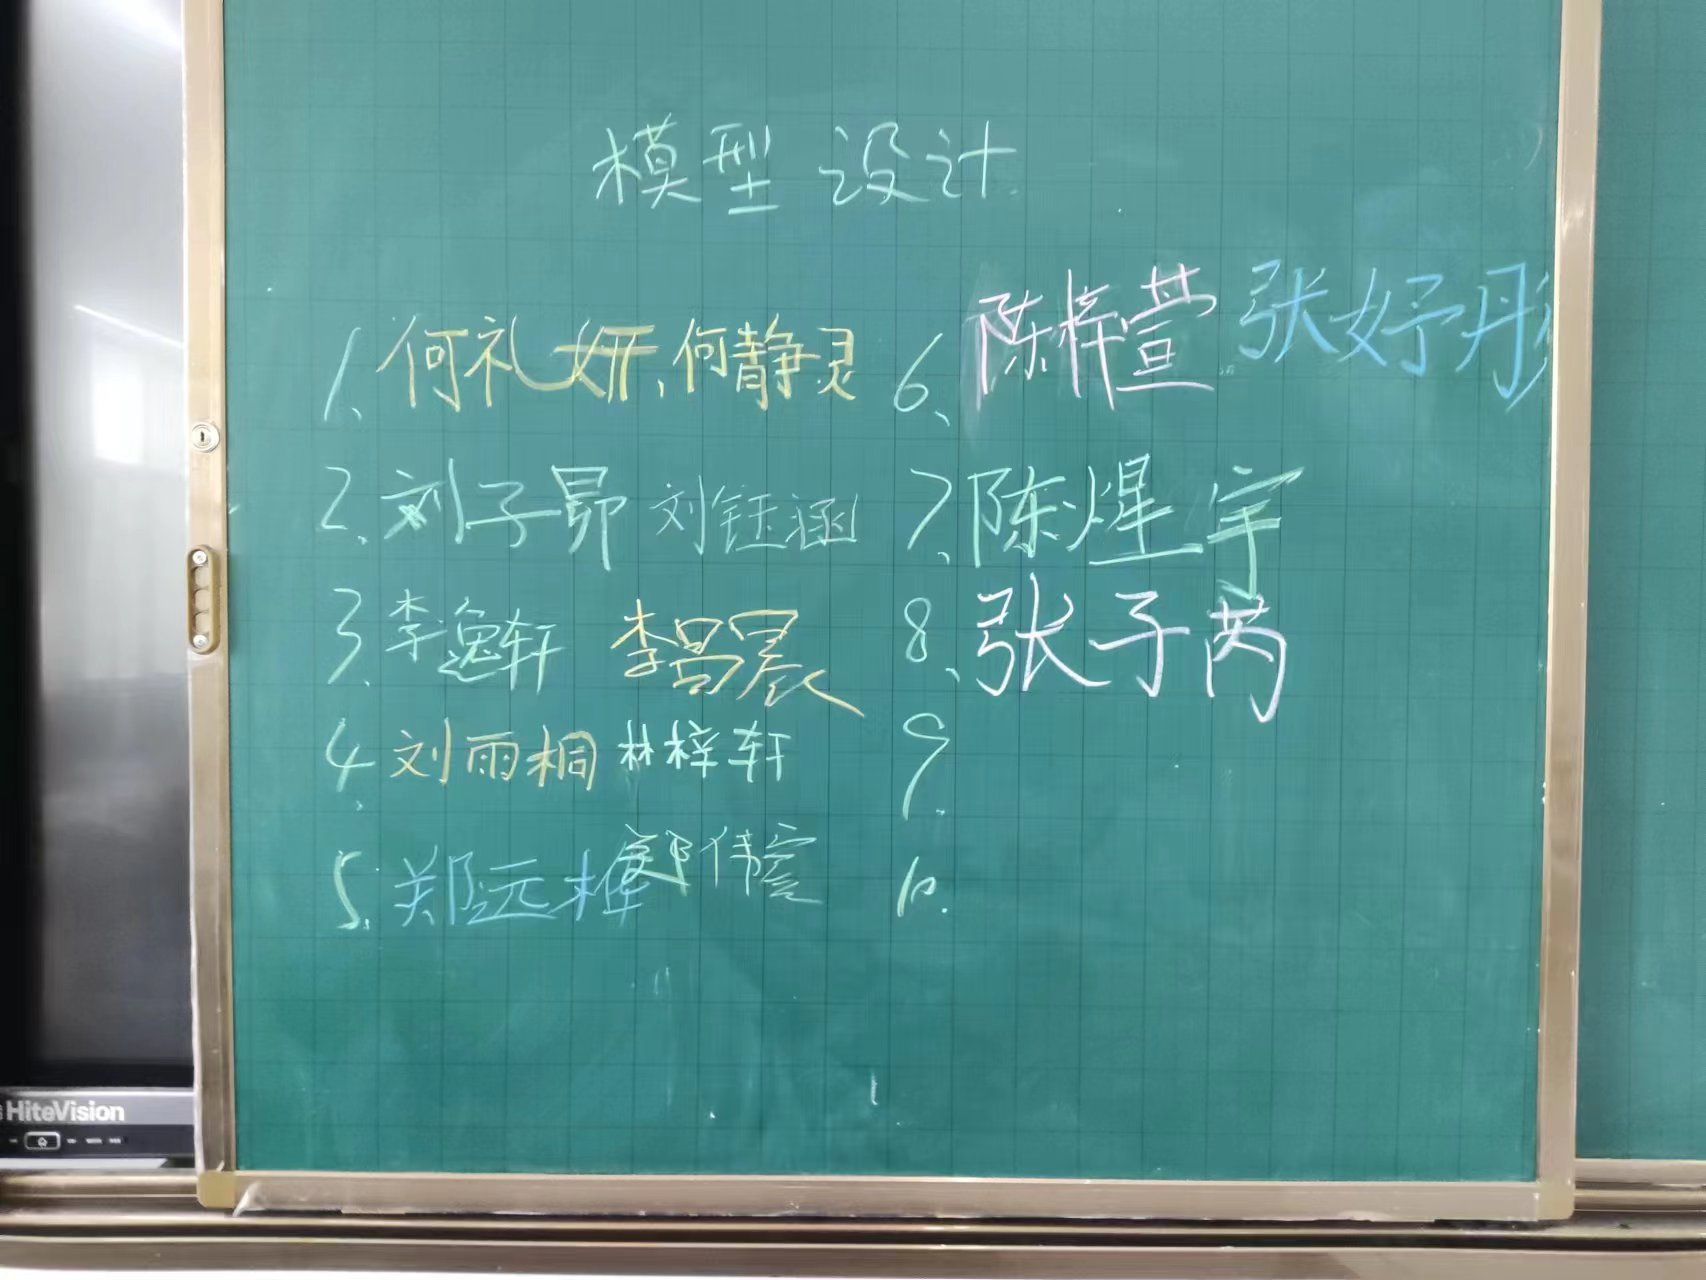 模型设计
1、何礼妍,何静灵
2、刘子昴 刘钰涵
3、李逸轩 李昌晨
4、刘雨桐 林梓轩
5、郑远桦 郑伟
6、陈梓萱 张妤彤
7、陈煋宇
8、张子芮
9.
10.
HiteVision